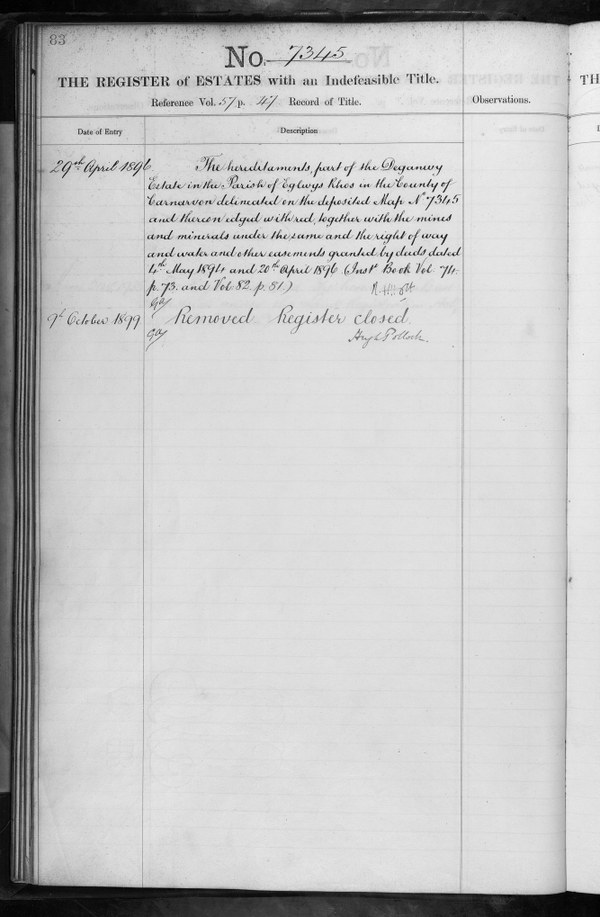 83
No. 7345
THE REGISTER of ESTATES with an Indefeasible Title.
Reference Vol. 51 p. 47 Record of Title.
Observations.
Date of Entry
Description
29th April 1896
The hereditaments, part of the Deganwy
Estate in the Parish of Eglwys Rhos in the County of
Carnarvon delineated on the deposited Map No 7345
and thereon edged with red, together with the mines
and minerals under the same and the right of way
and water and other easements granted by deeds dated
4th May 1894 and 20th April 1896 (Inst Book Vol 74
p. 73. and Vol 82. p. 81.)
R H Holt
9th October 1899
Removed Register closed
Hugh Pollock.
TH